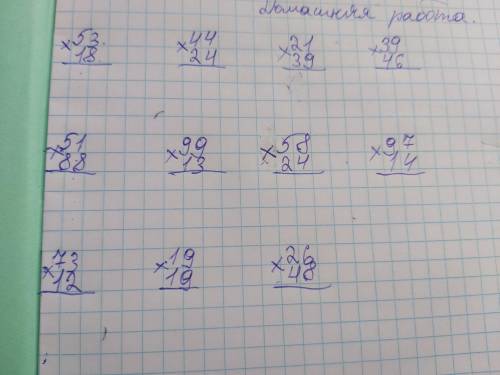 Домашняя работа.
×53 ×44 ×21 ×39
18 24 39 46
×51 ×99 ×58 ×97
88 13 24 14
×73 ×19 ×26
12 19 48